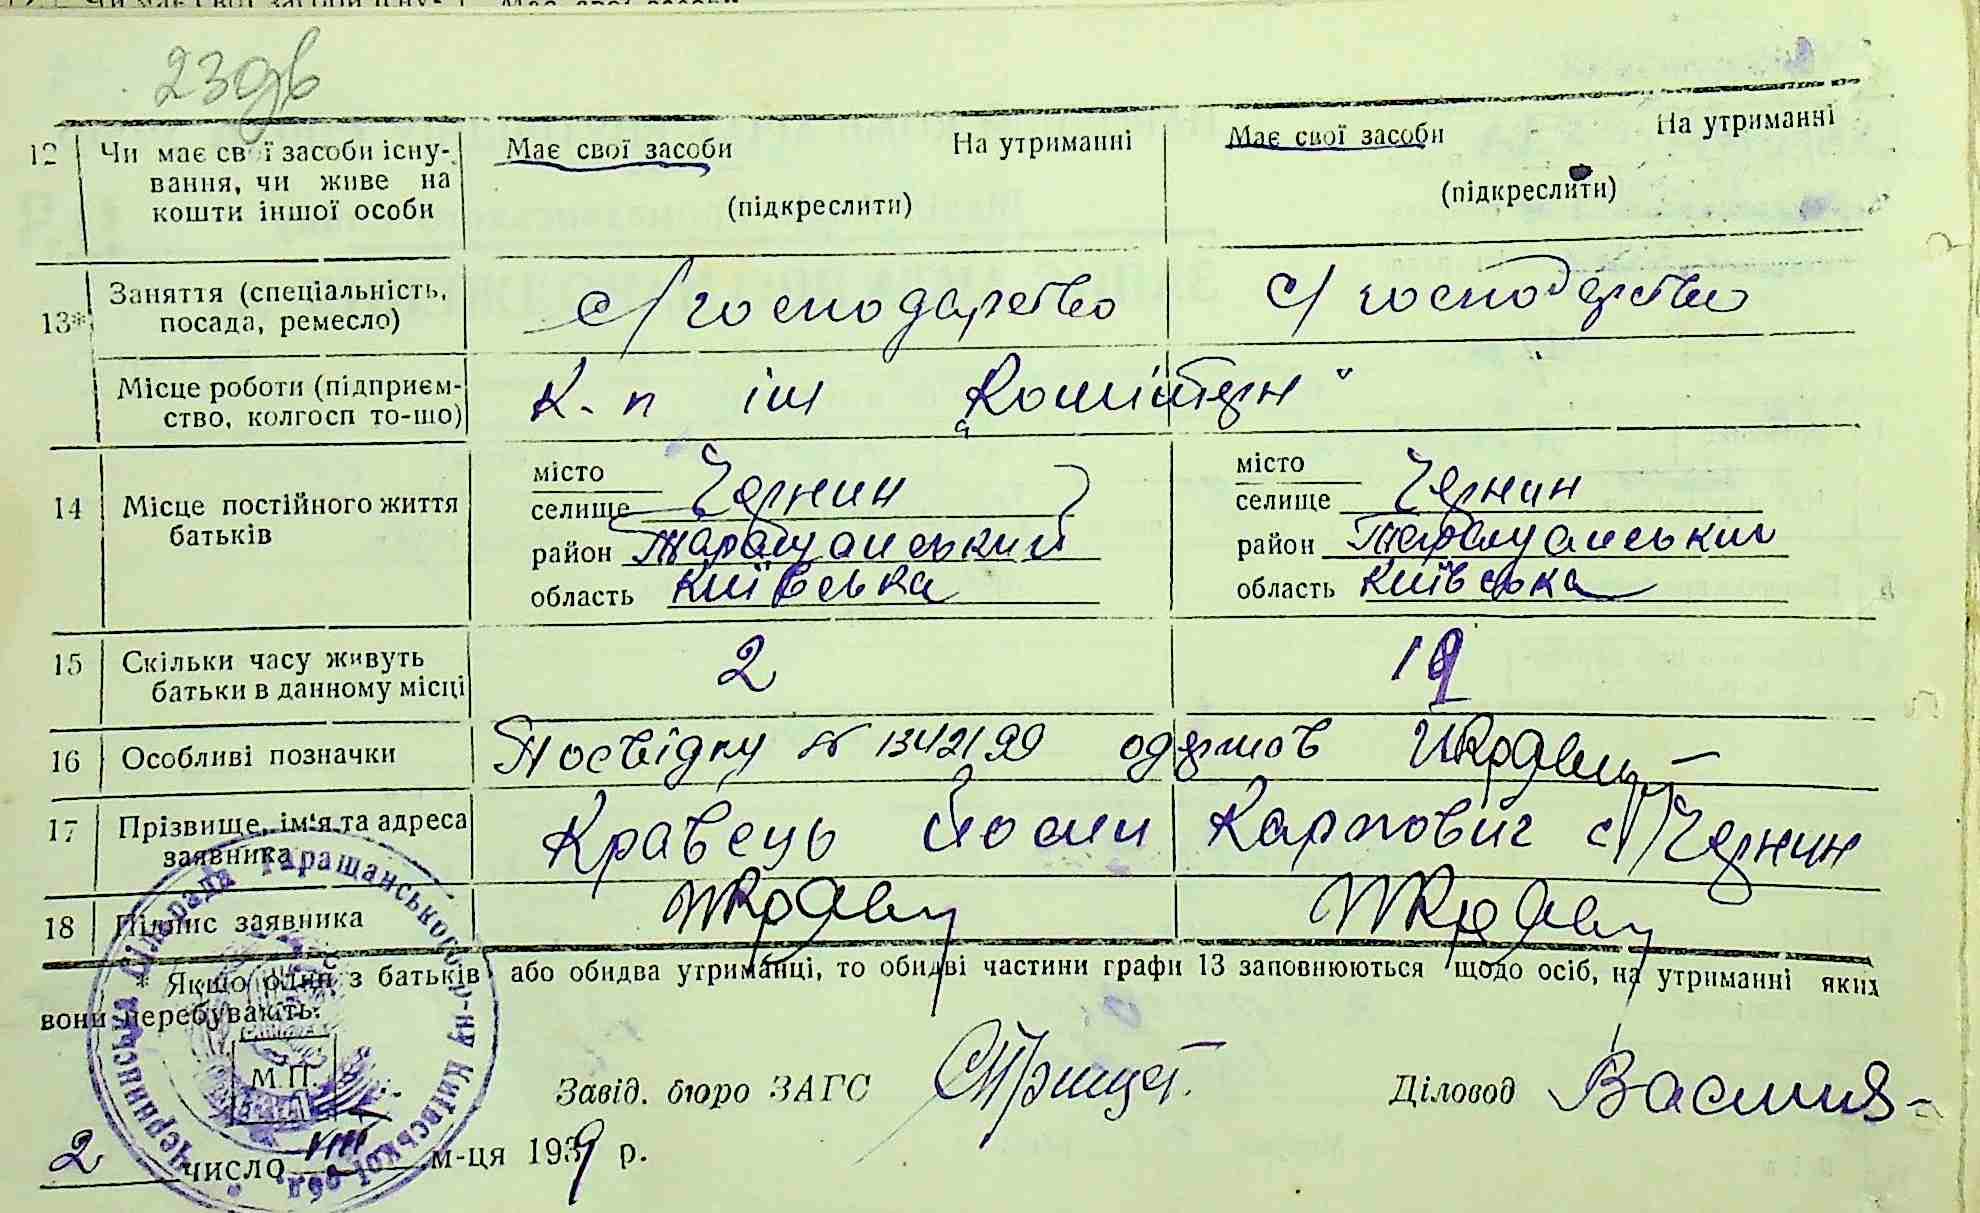 23 дв
12 Чи має свої засоби існу-
вання, чи живе на
кошти іншої особи
Має свої засоби На утриманні
(підкреслити)
Має свої засоби На утриманні
(підкреслити)
13* Заняття (спеціальність,
посада, ремесло)
с/господарство
с/господарство
Місце роботи (підприєм-
ство, колгосп то-що)
К-п ім „Комінтерн"
14 Місце постійного життя
батьків
місто
селище Чернин
район Таращанський
область Київська
місто
селище Чернин
район Таращанський
область Київська
15 Скільки часу живуть
батьки в данному місці
2
19
16 Особливі позначки
Посвідку № 1342199 одержав
17 Прізвище, ім'я та адреса
заявника
Кравець Йосип Карпович с/Чернин
18 Підпис заявника
* Якщо один з батьків або обидва утриманці, то обидві частини графи 13 заповнюються щодо осіб, на утриманні яких
вони перебувають.
Чернинська сільрада Таращанського р-ну Київської обл.
М.П.
Завід. бюро ЗАГС
Діловод
2 число VIII м-ця 1939 р.